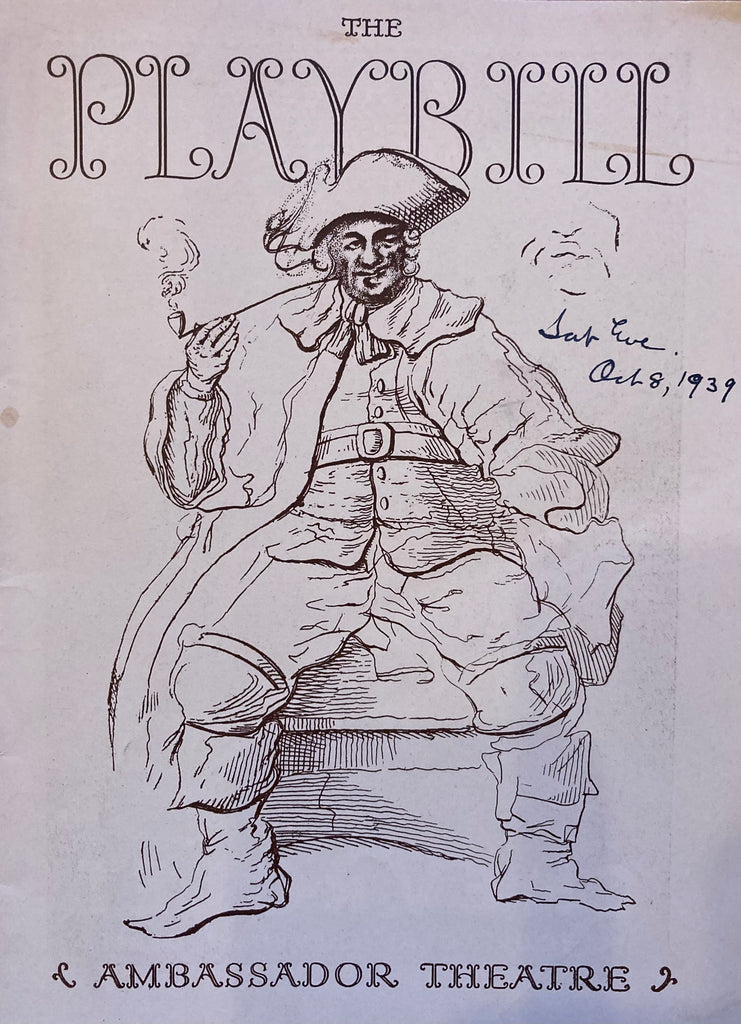 THE
PLAYBILL
Sat Eve.
Oct 8, 1939
AMBASSADOR THEATRE